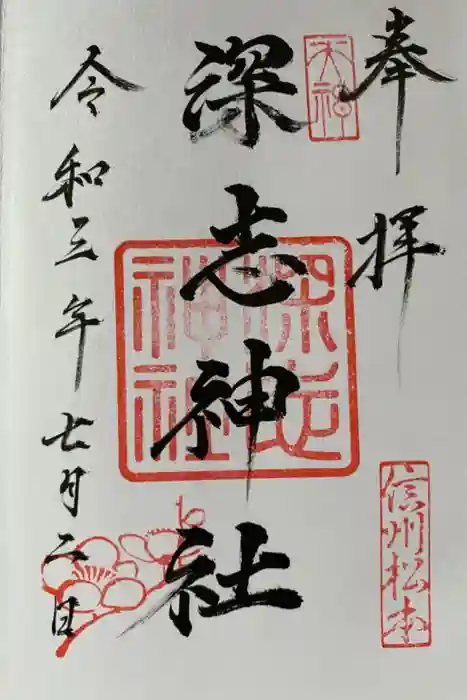 奉拝
天神
信州松本
深志神社
深志神社
令和三年七月二日